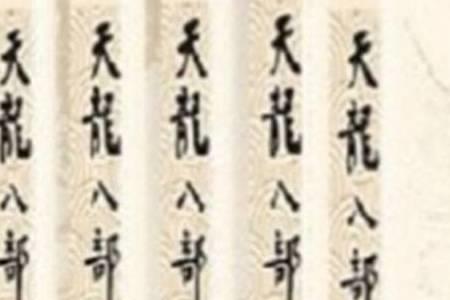 天龍八部
天龍八部
天龍八部
天龍八部
天龍八部